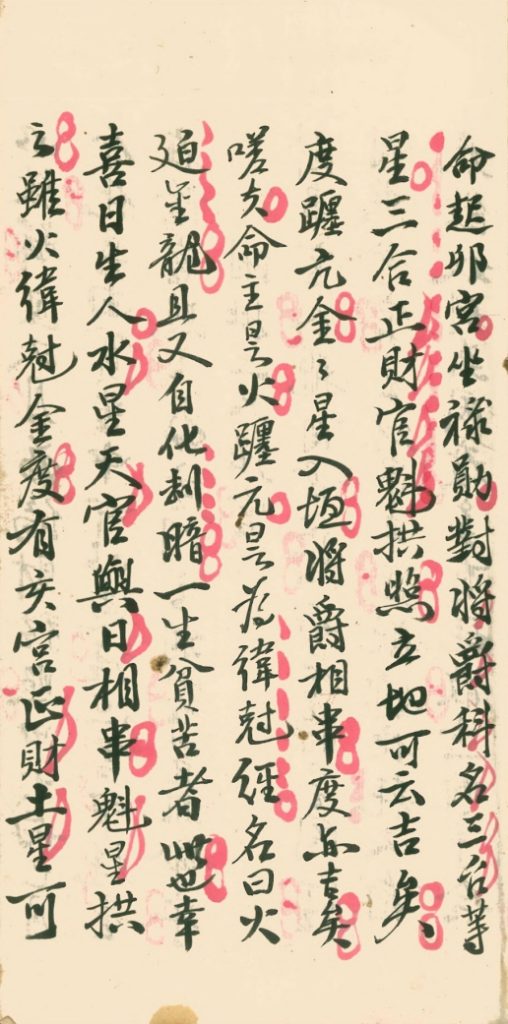 命起卯宮坐祿勛對將爵科名三台等
星三合正財官魁拱照立地可云吉矣
度躔亢金〻星入垣將爵相串度亦吉矣
嗟夫命主是火躔亢是為緯尅經名曰火
迫金龍且又自化刦暗一生貧苦者此也幸
喜日生人水星天官與日相串魁星拱
之雖火緯尅金度有亥宮正財土星可